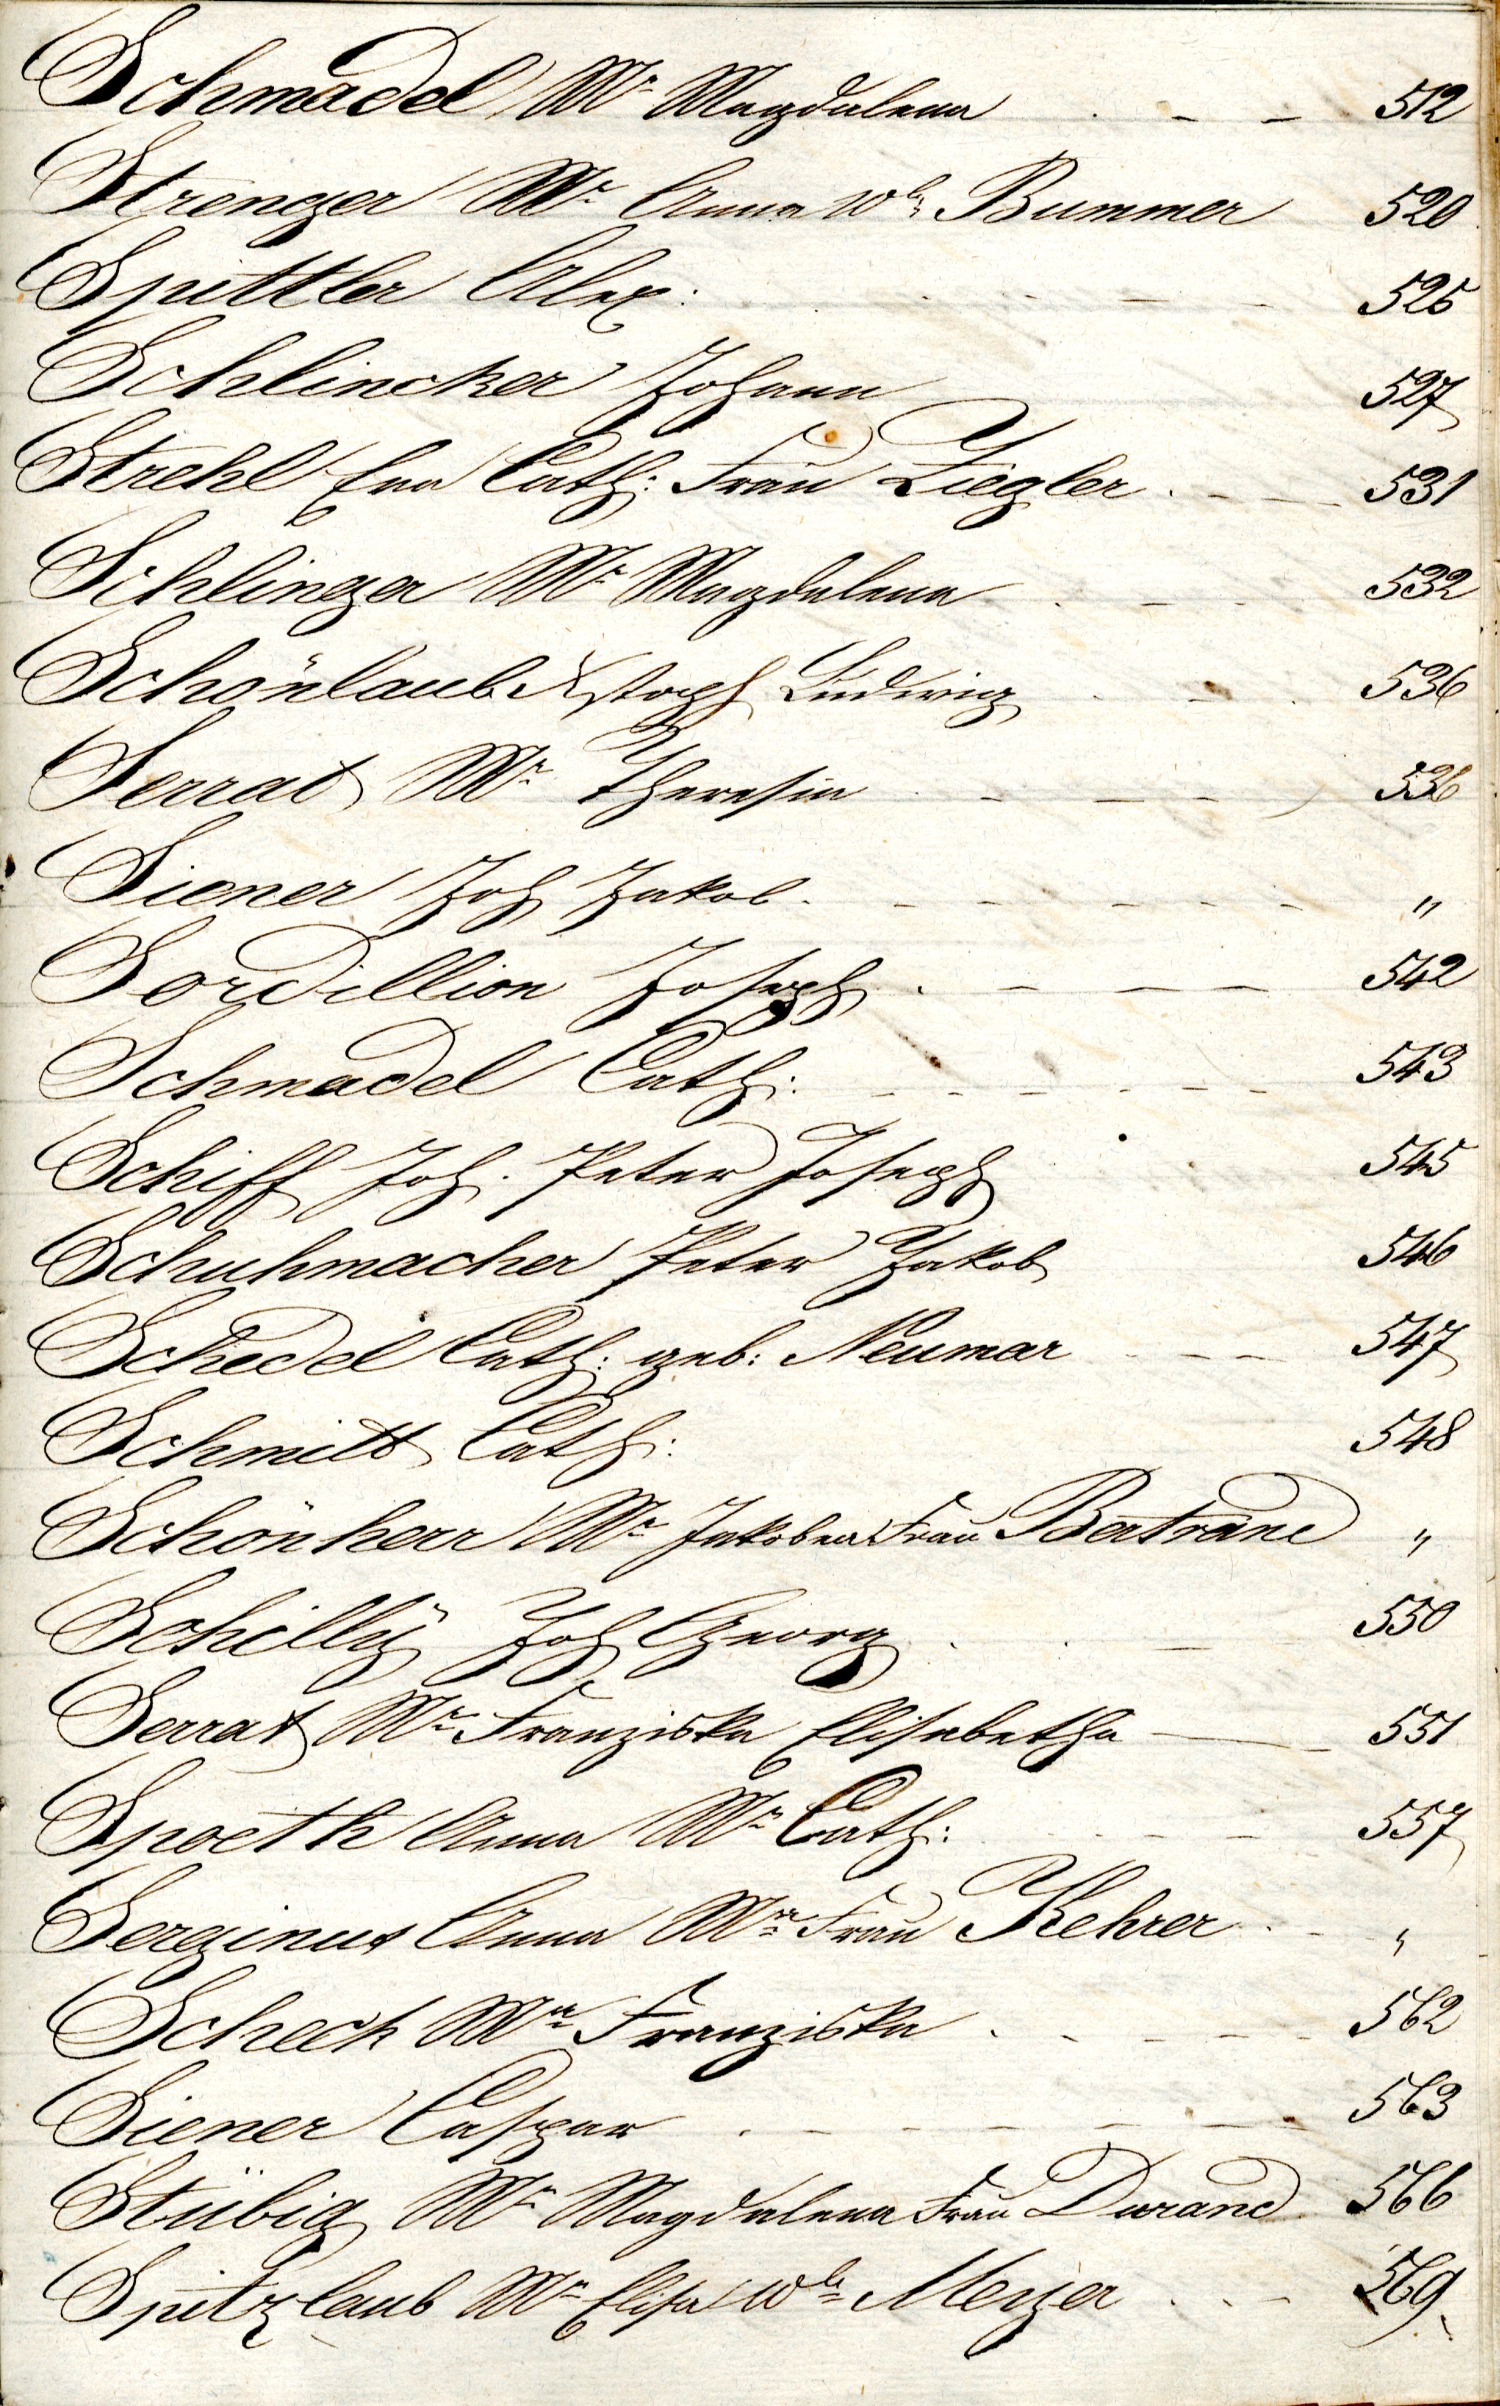 Schmadel Mr Magdalena . – – 512
Strenger Mr Anna Wb: Bummer 520
Spittler Alex: – – 525
Schlincker Johann 527
Strehl Eva Cath: Frau Ziegler . – – 531
Schlinger Mr Magdalena . – . 532
Schönlaub Xstoph Ludwig . – . 536
Serrat Mr Theresia . – – – 536
Siener Joh Jakob . – – – – – "
Sordillion Joseph . – – – 542
Schmadel Cath: – – – – – 543
Schiff Joh. Peter Joseph 545
Schuhmacher Peter Jakob 546
Schedel Cath: geb: Neumar – – – 547
Schmitt Cath: 548
Schönherr Mr Jakobea Frau Bertrand "
Schillÿ Joh Georg . . – 550
Serrat Mr Franziska Elisabetha — 551
Spoeth Anna Mr Cath: – – 557
Serginus Anna Mr Frau Kehrer . – "
Scheck Mr Franziska . . – – – 562
Siener Caspar . – – – – – 563
Stübig Mr Magdalena Frau Durand 566
Spitzlaub Mr Elisa Wb Meyer . . – 569